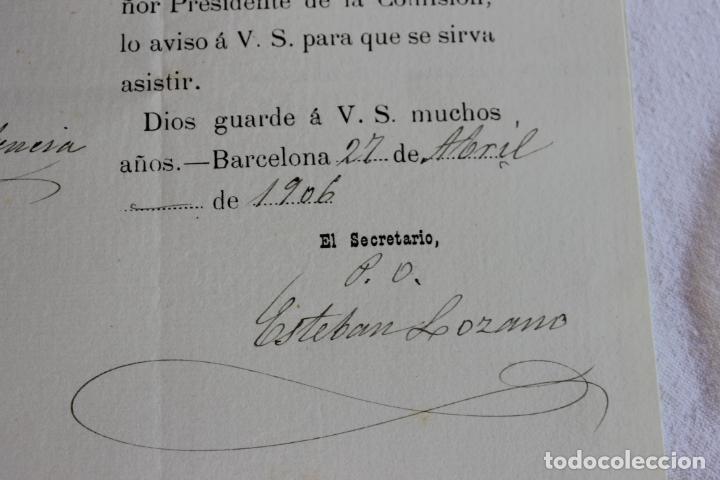 ñor Presidente de la Comisión,
lo aviso á V. S. para que se sirva
asistir.
Dios guarde á V. S. muchos
años.—Barcelona 27 de Abril
de 1906
El Secretario,
P. O.
Esteban Lozano
todocoleccion